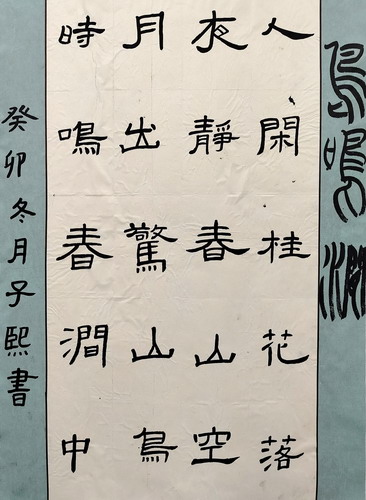 鳥鳴澗
人閑桂花落
夜靜春山空
月出驚山鳥
時鳴春澗中
癸卯冬月子熙書